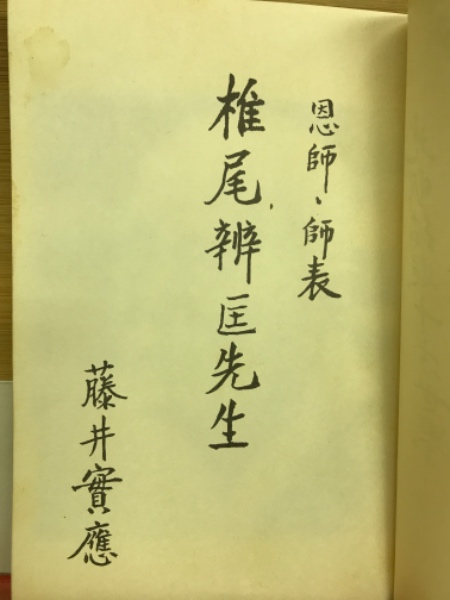 恩師、師表
椎尾辨匡先生
藤井實應